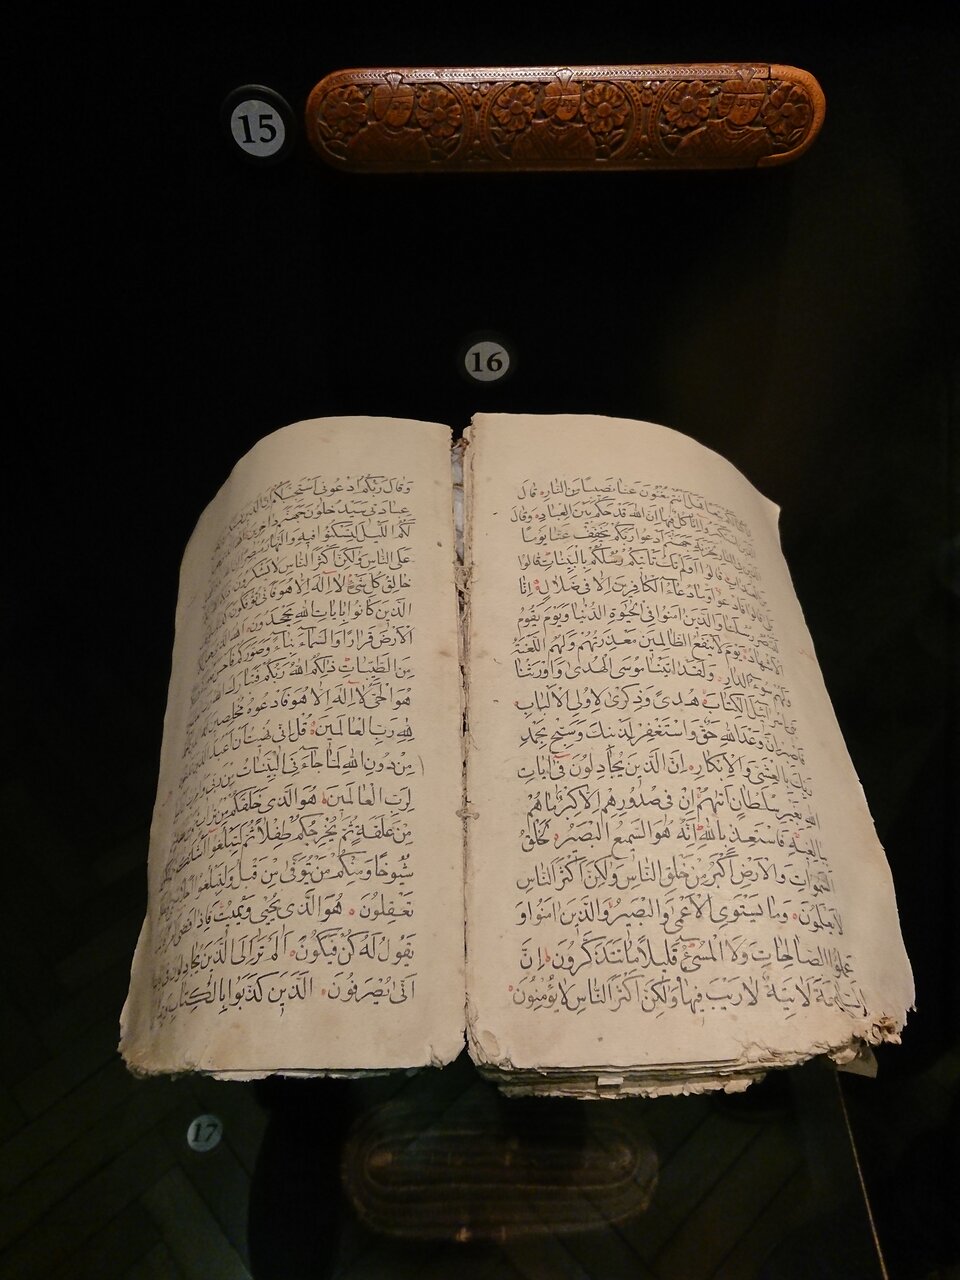 15
16
فهل أنتم مغنون عنا نصيبا من النار قال
إنا كل فيها إن الله قد حكم بين العباد وقال
جهنم ادعوا ربكم يخفف عنا يوما
قالوا أولم تك تأتيكم رسلكم بالبينات قالوا
قالوا فادعوا وما دعاء الكافرين إلا في ضلال إنا
رسلنا والذين آمنوا في الحيوة الدنيا ويوم يقوم
الأشهاد يوم لا ينفع الظالمين معذرتهم ولهم اللعنة
ولهم سوء الدار ولقد اتينا موسى الهدى وأورثنا
إسرائيل الكتاب هدى وذكرى لأولي الألباب
إن وعد الله حق واستغفر لذنبك وسبح بحمد
ربك بالعشي والإبكار إن الذين يجادلون في آيات
الله بغير سلطان أتيهم إن في صدورهم إلا كبر ما هم
ببالغيه فاستعذ بالله إنه هو السميع البصير لخلق
السموات والأرض أكبر من خلق الناس ولكن أكثر الناس
لا يعلمون وما يستوي الأعمى والبصير والذين آمنوا و
عملوا الصالحات ولا المسيء قليلا ما تتذكرون إن
الساعة لآتية لا ريب فيها ولكن أكثر الناس لا يؤمنون
وقال ربكم ادعوني أستجب لكم إن الذين
عبادتي سيدخلون جهنم داخرين
لكم الليل لتسكنوا فيه والنهار
على الناس ولكن أكثر الناس لا يشكرون
خالق كل شيء لا إله إلا هو فأنى تؤفكون
الذين كانوا بآيات الله يجحدون الله
الأرض قرارا والسماء بناء وصوركم فأحسن
من الطيبات ذلكم الله ربكم فتبارك الله
هو الحي لا إله إلا هو فادعوه مخلصين
لله رب العالمين قل إني نهيت أن أعبد الذين
من دون الله لما جاءني البينات من ربي وأمرت
لرب العالمين هو الذي خلقكم من تراب
من علقة ثم يخرجكم طفلا ثم لتبلغوا أشدكم
شيوخا ومنكم من يتوفى من قبل ولتبلغوا أجلا
تعقلون هو الذي يحيي ويميت فإذا قضى
يقول له كن فيكون ألم تر إلى الذين يجادلون في
أنى يصرفون الذين كذبوا بالكتاب
17